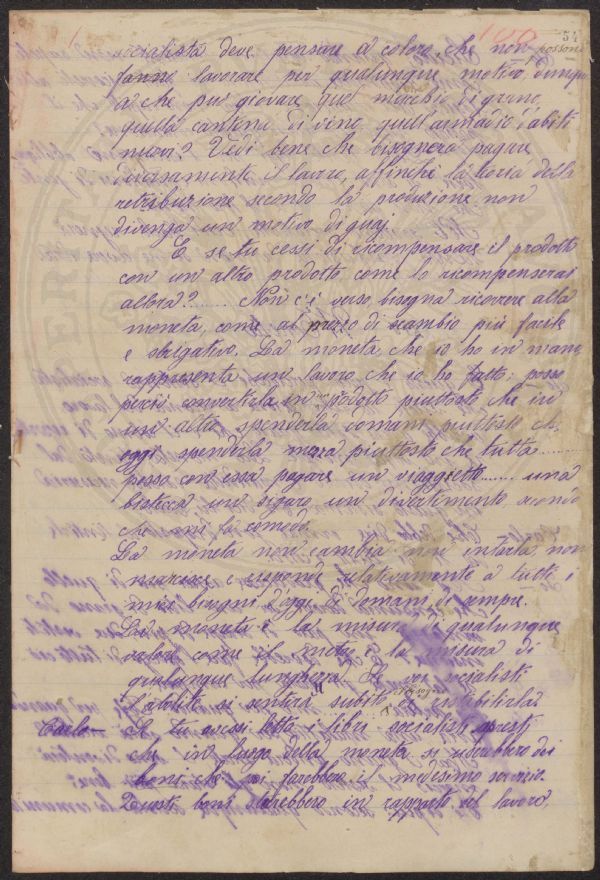 54
100
socialista deve pensare a coloro che non possono
fanno lavorare per qualunque motivo dunque
a che può giovare quel mucchio di grano,
quella cantina di vino, quell'armadio d'abiti
nuovi? Vedi bene che bisognerà pagare
diversamente il lavoro, affinchè la teoria della
retribuzione secondo la produzione non
divenga un motivo di guai.
E se tu cessi di ricompensare il prodotto
con un altro prodotto come lo ricompenserai
allora?...... Non c'è verso, bisogna ricorrere alla
moneta, come al mezzo di scambio più facile
e sbrigativo. La moneta, che io ho in mano,
rappresenta un lavoro, che io ho fatto; posso
perciò convertirla in prodotto piuttosto che in
un altro spenderla domani piuttosto che
oggi spenderla mezza piuttosto che tutta......
posso con essa pagare un viaggetto...... una
bistecca, un sigaro, un divertimento, secondo
che mi fa comodo.
La moneta non cambia, non intarla, non
marcisce e risponde relativamente a tutti i
miei bisogni d'oggi, di domani, di sempre.
La moneta è la misura di qualunque
valore come il metro è la misura di
qualunque lunghezza. Se voi socialisti
l'abolite si sentirà subito il bisogno di ristabilirla.
Carlo — Se tu avessi letto i libri socialisti sapresti
che in luogo della moneta si userebbero dei
boni, che poi farebbero il medesimo servizio.
Questi boni starebbero in rapporto del lavoro,